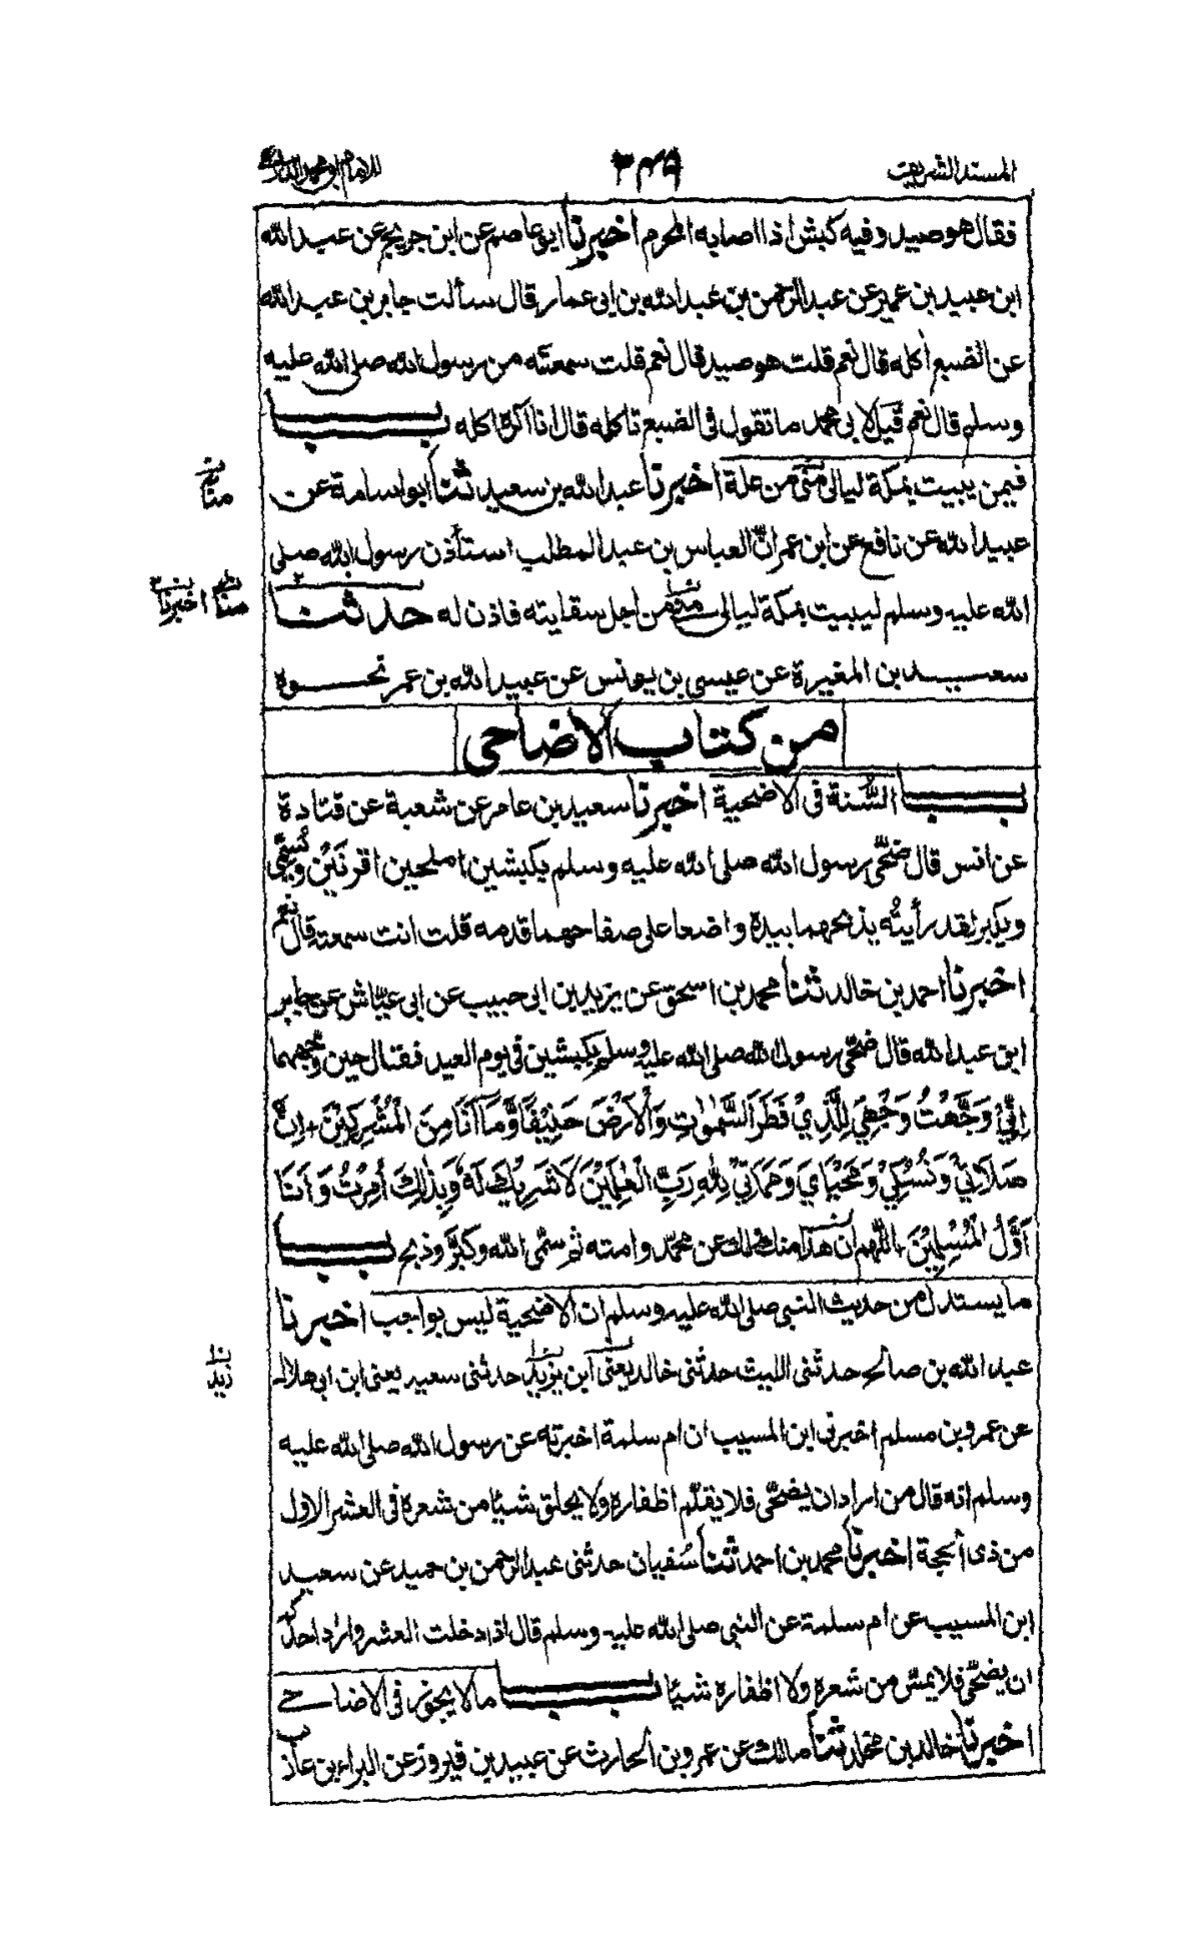 المسند الشريف ٣٤٩ للامام ابو محمد الدارمى
فقال هو صيد وفيه كبش اذا اصابه المحرم اخبرنا ابو عاصم عن ابن جريج عن عبد الله
ابن عبيد بن عمير عن عبد الرحمن بن عبد الله بن ابى عمار قال سألت جابر بن عبد الله
عن الضبع أكله قال نعم قلت هو صيد قال نعم قلت سمعته من رسول الله صلى الله عليه
وسلم قال نعم قيل لابى محمد ما تقول فى الضبع تاكله قال انا اكره اكله باب
فيمن يبيت بمكة ليالى منى من علة اخبرنا عبد الله بن سعيد ثنا ابو اسامة عن
عبيد الله عن نافع عن ابن عمر انّ العباس بن عبد المطلب استأذن رسول الله صلى
الله عليه وسلم ليبيت بمكة ليالى منى من اجل سقايته فاذن له حدثنا
سعيد بن المغيرة عن عيسى بن يونس عن عبيد الله بن عمر نحوه
من كتاب الاضاحى
باب السُّنة فى الاضحية اخبرنا سعيد بن عامر عن شعبة عن قتادة
عن انس قال ضحّى رسول الله صلى الله عليه وسلم بكبشين املحين اقرنَيْن ويُسَمّى
ويكبر لقد رأيتُه يذبحهما بيده واضعا على صفاحهما قدمه قلت انت سمعته قال نعم
اخبرنا احمد بن خالد ثنا محمد بن اسحق عن يزيد بن ابى حبيب عن ابى عيّاش عن جابر
ابن عبد الله قال ضحّى رسول الله صلى الله عليه وسلم بكبشين فى يوم العيد فقال حين وجّههما
اِنِّيْ وَجَّهْتُ وَجْهِيَ لِلَّذِيْ فَطَرَ السَّمٰوٰتِ وَالْاَرْضَ حَنِيْفًا وَّمَا اَنَا مِنَ الْمُشْرِكِيْنَ اِنَّ
صَلَاتِيْ وَنُسُكِيْ وَمَحْيَايَ وَمَمَاتِيْ لِلّٰهِ رَبِّ الْعٰلَمِيْنَ لَا شَرِيْكَ لَهٗ وَبِذٰلِكَ اُمِرْتُ وَاَنَا
اَوَّلُ الْمُسْلِمِيْنَ اللّٰهم ان هذا منك ولك عن محمّد وامته ثم سمّى الله وكبَّر وذبح باب
ما يستدل من حديث النبى صلى الله عليه وسلم ان الاضحية ليس بواجب اخبرنا
عبد الله بن صالح حدثنى الليث حدثنى خالد يعنى ابن يزيد حدثنى سعيد يعنى ابن ابى هلال
زيد
عن عمرو بن مسلم اخبرنى ابن المسيب ان ام سلمة اخبرته عن رسول الله صلى الله عليه
وسلم انه قال من اراد ان يضحّى فلا يقلّم اظفاره ولا يحلق شيئا من شعره فى العشر الاول
من ذى الحجة اخبرنا محمد بن احمد ثنا سُفيان حدثنى عبد الرحمن بن حميد عن سعيد
ابن المسيب عن ام سلمة عن النبى صلى الله عليه وسلم قال اذا دخلت العشر واراد احدكم
ان يضحّى فلا يمسّ من شعره ولا اظفاره شيئا باب ما لا يجوز فى الاضاحى
اخبرنا خالد بن مخلد ثنا مالك عن عمرو بن الحارث عن عبيد بن فيروز عن البراء بن عازب